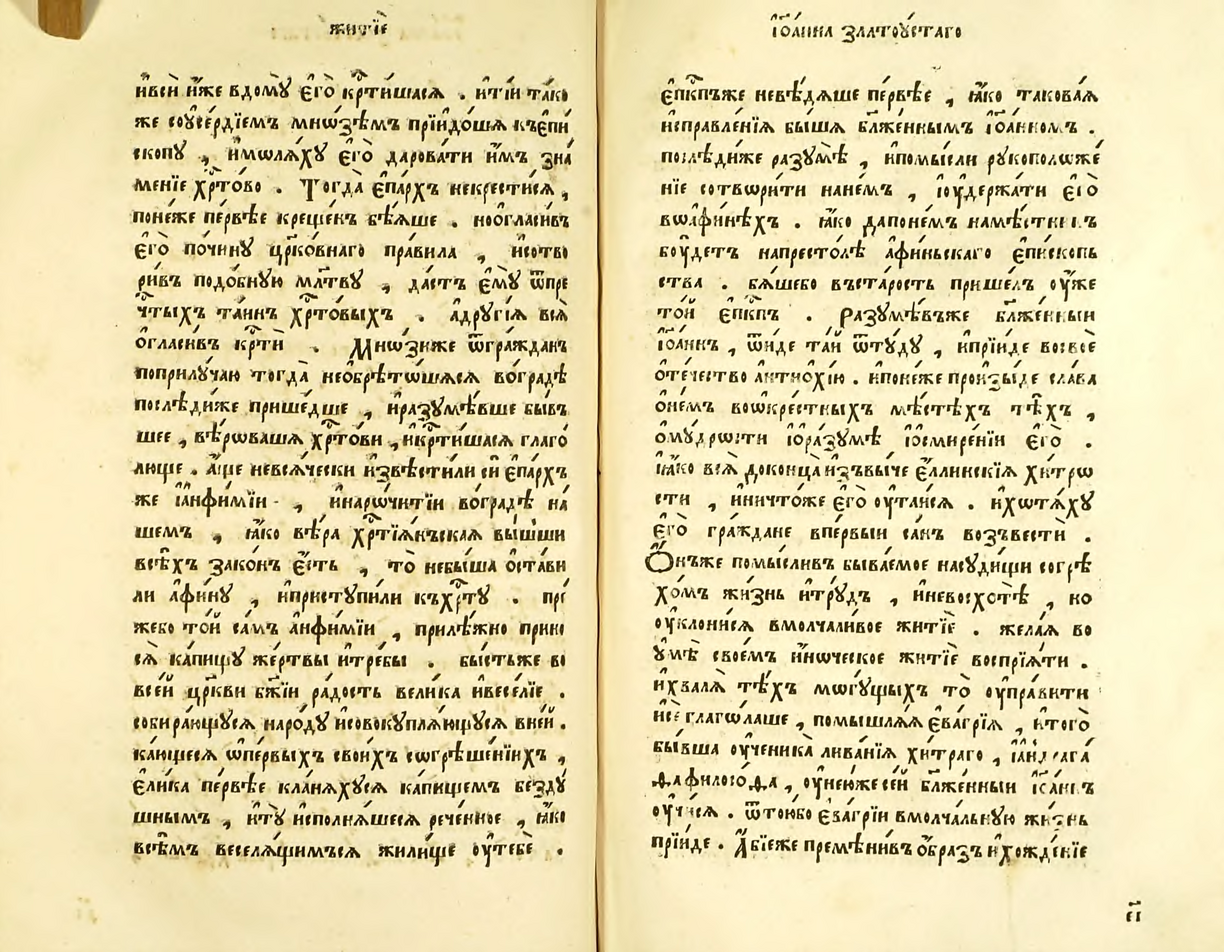 житїѐ
и҆всѝ и҆́же вдомꙋ̀ є҆гѡ̀ крⷭ҇ти́шасѧ . и҆ті́и та́ко
же соу҆се́рдїемъ мно́ѕѣмъ прїидо́ша къє҆пи́
скопꙋ , и҆молѧ́хꙋ є҆гѡ̀ дарова́ти и҆̀мъ зна́
менїе хрⷭ҇то́во . Тогда̀ є҆па́рхъ некрести́сѧ ,
поне́же пе́рвѣе креще́нъ бѣ́ѧше . нооогласи́въ
є҆го̀ почи́нꙋ црⷪ҇ко́внаго пра́вила , и҆сотво
ри́въ подо́бнꙋю млⷭ҇твꙋ , да́стъ є҆мꙋ̀ ѿпре
чⷭ҇тыхъ та́инъ хрⷭ҇то́выхъ . адрꙋгі́ѧ всѧ̀
ѻ҆гласи́въ крⷭ҇тѝ . Мно́ѕиже ѿгра́жданъ
поприлꙋ́чаю тогда̀ необрѣ́тшаѧсѧ во́градѣ
послѣ́диже прише́дше , и҆разꙋмѣ́вше бы́в
шее , вѣ́роваша хрⷭ҇то́ви , и҆крⷭ҇ти́шасѧ глаго́
люще . а҆́ще невсѧ́чески и҆звѣсти́ли сѝ є҆па́рхъ
же і҆а҆нфимі́и , и҆наро́читїи во́градѣ на́
шемъ , ꙗ҆́ко вѣ́ра хрⷭ҇тїѧ́ньскаѧ вы́шши
всѣ́хъ зако́нъ є҆́сть , то̀ небы́ша ѻ҆ста́ви
ли а҆фи́нꙋ , и҆пристꙋпи́ли къхрⷭ҇тꙋ̀ . прі́
жебо то́й са́мъ а҆нфимі́и , прилѣ́жно прино
сѧ̀ ка́пищꙋ же́ртвы и҆тре́бы . бы́стьже во
все́й цр҃кви бж҃їи ра́дость вели́ка и҆весе́лїе .
собира́ющꙋсѧ наро́дꙋ и҆совокꙋплѧ́ющꙋсѧ вне́й .
ка́ющесѧ ѡ҆пе́рвыхъ свои́хъ согрѣше́нїихъ ,
є҆ли́ка пе́рвѣе кланѧ́хꙋсѧ ка́пищемъ бездꙋ́
шнымъ , и҆тꙋ̀ и҆сполнѧ́шесѧ рече́нное , ꙗ҆́ко
всѣ́мъ веселѧ́щимъсѧ жили́ще оу҆тебѐ .
і҆ѡа́нна златоу́стаго
є҆пⷭ҇кпъже невѣ́дѧше пе́рвѣе , ꙗ҆́ко такова́ѧ
и҆справле́нїѧ бы́ша бл҃же́ннымъ і҆ѡа́нномъ .
послѣ́диже разꙋмѣ̀ , и҆помы́сли рꙋкоположе́
нїе сотвори́ти нане́мъ , і҆оу҆держа́ти є҆го̀
воа҆фи́нѣхъ . ꙗ҆́ко дапоне́мъ намѣ́стникъ
боу́детъ напресто́лѣ а҆фи́ньскаго є҆пи́скопь
ства . бѧ́шебо въста́рость прише́лъ оу҆же
то́й є҆пⷭ҇кпъ . Разꙋмѣ́въже бл҃же́нныи
і҆ѡа́ннъ , ѿи́де та́й ѿтꙋ́дꙋ , и҆прїи́де восвоѐ
ѻ҆те́чество а҆нтиохі́ю . и҆поне́же произы́де сла́ва
ѻ҆не́мъ воѡ҆кре́стныхъ мѣ́стѣхъ тѣ́хъ ,
ѻ҆мꙋ́дрости і҆ѻра́зꙋмѣ і҆ѻсмире́нїи є҆го̀ .
ꙗ҆́ко всѧ̀ доконца̀ и҆зъвы́че є҆́ллинскїѧ хи́тро
сти , и҆ничто́же є҆го̀ оу҆таи́сѧ . и҆хотѧ́хꙋ
є҆го̀ гра́ждане впе́рвыи са́нъ возъвести́ .
Ѻ҆́нъже помы́сливъ быва́емое насꙋди́щи согрѣ
хо́мъ жи́знь и҆трꙋ́дъ , и҆невосхотѣ̀ , но
оу҆клони́сѧ вмолчали́вое житїѐ . жела́ѧ во
ꙋ҆мѣ̀ свое́мъ и҆́ноческое житїѐ воспрїѧ́ти .
и҆хвалѧ̀ тѣ́хъ могꙋ́щыхъ то̀ оу҆пра́вити
и҆сѐ глаго́лаше , помышлѧ́ѧ є҆ва́грїѧ , и҆того̀
бы́вша оу҆ченика̀ лива́нїѧ хи́траго ,
да философа , оу҆него́же се́й бл҃же́нныи і҆ѡа́ннъ
оу҆чи́сѧ . ѿтоюбо є҆ва́грїи вмолча́льнꙋю жи́знь
прїи́де . А҆́бїеже премѣни́въ ѻ҆́бразъ и҆хожде́нїе
є҃і